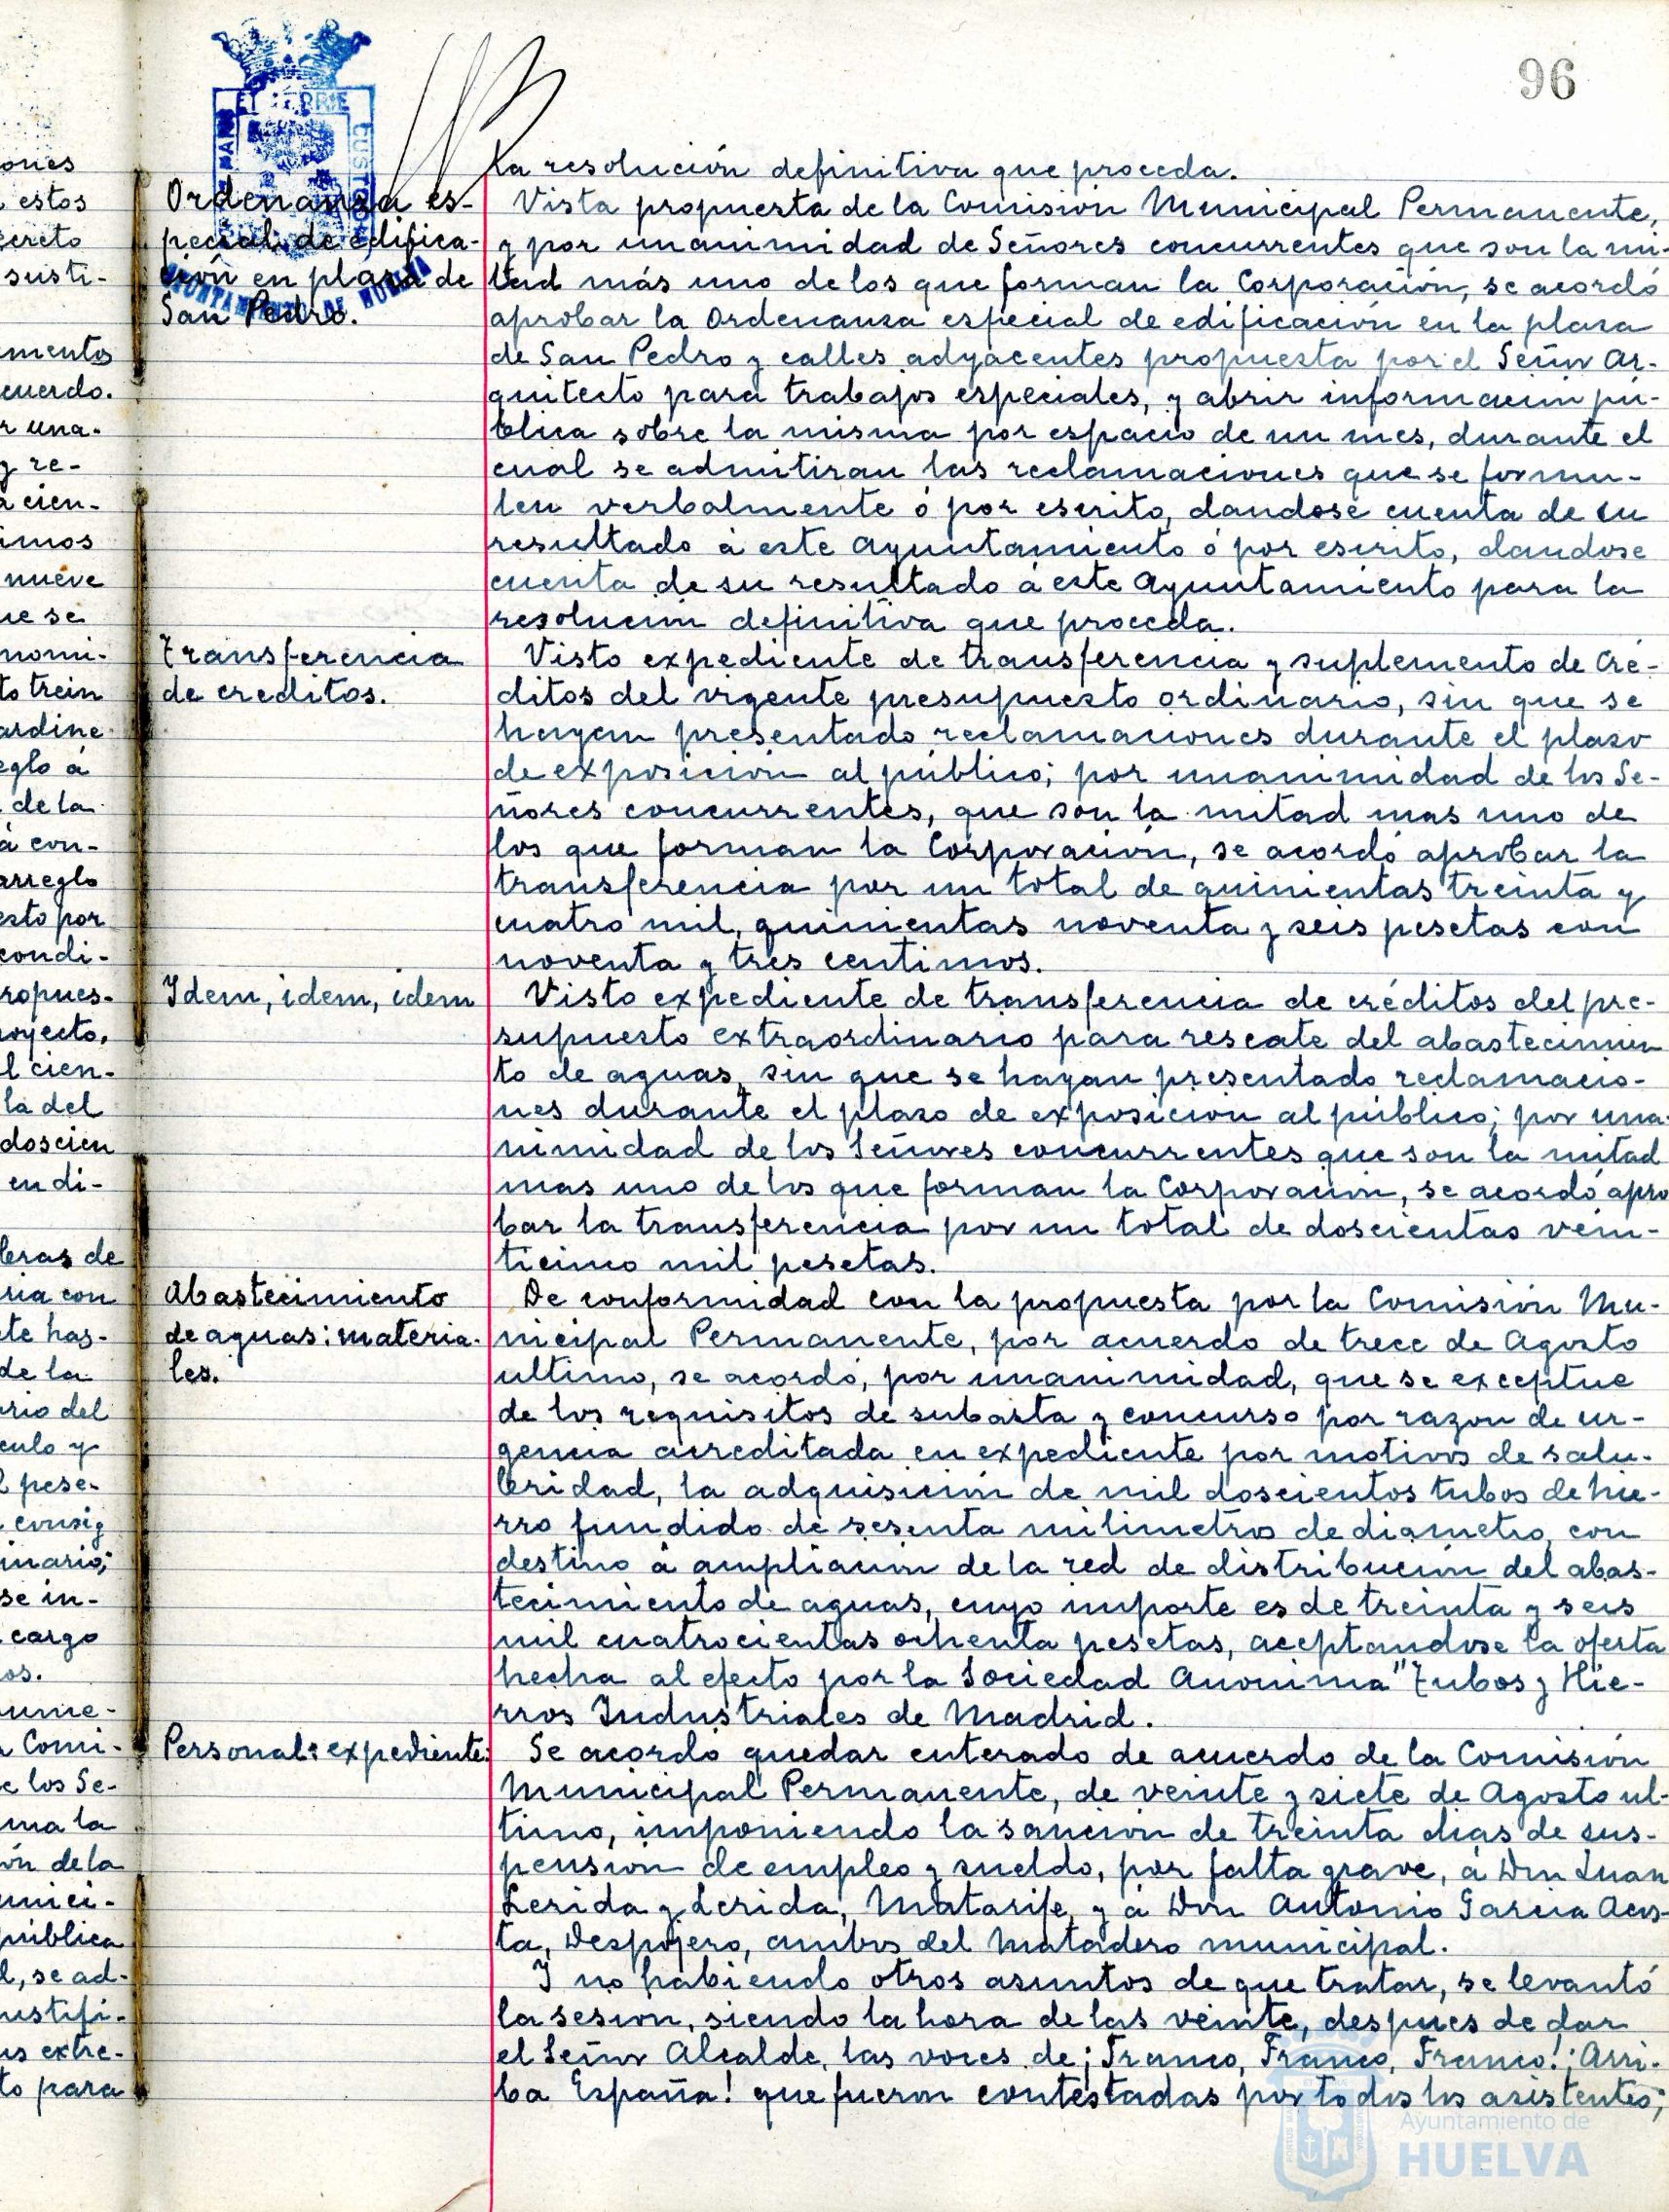 96
la resolución definitiva que proceda.
Ordenanza es-
pecial de edifica-
ción en plaza de
San Pedro.
Vista propuesta de la Comision Municipal Permanente,
y por unanimidad de Señores concurrentes que son la mi-
tad más uno de los que forman la Corporación, se acordó
aprobar la Ordenanza especial de edificación en la plaza
de San Pedro y calles adyacentes propuesta por el Señor Ar-
quitecto para trabajos especiales, y abrir información pú-
blica sobre la misma por espacio de un mes, durante el
cual se admitiran las reclamaciones que se formu-
len verbalmente ó por escrito, dandose cuenta de su
resultado á este Ayuntamiento ó por escrito, dandose
cuenta de su resultado á este Ayuntamiento para la
resolucion definitiva que proceda.
Transferencia
de creditos.
Visto expediente de transferencia y suplemento de Cré-
ditos del vigente presupuesto ordinario, sin que se
hayan presentado reclamaciones durante el plazo
de exposición al público; por unanimidad de los Se-
ñores concurrentes, que son la mitad mas uno de
los que forman la Corporación, se acordó aprobar la
transferencia por un total de quinientas treinta y
cuatro mil, quinientas noventa y seis pesetas con
noventa y tres centimos.
Idem, idem, idem
Visto expediente de transferencia de créditos del pre-
supuesto extraordinario para rescate del abastecimien
to de aguas, sin que se hayan presentado reclamacio-
nes durante el plazo de exposicion al público; por una-
nimidad de los Señores concurrentes que son la mitad
mas uno de los que forman la Corporacion, se acordó apro
bar la transferencia por un total de doscientas vein-
ticinco mil pesetas.
Abastecimiento
de aguas: materia-
les.
De conformidad con la propuesta por la Comision Mu-
nicipal Permanente, por acuerdo de trece de Agosto
ultimo, se acordó, por unanimidad, que se exceptue
de los requisitos de subasta y concurso por razon de ur-
gencia acreditada en expediente por motivos de salu-
bridad, la adquisición de mil doscientos tubos de hie-
rro fundido de sesenta milimetros de diametro, con
destino á ampliación de la red de distribución del abas-
tecimiento de aguas, cuyo importe es de treinta y seis
mil cuatrocientas ochenta pesetas, aceptandose la oferta
hecha al efecto por la Sociedad Anonima "Tubos y Hie-
rros Industriales de Madrid.
Personal: expediente.
Se acordo quedar enterado de acuerdo de la Comisión
Municipal Permanente, de veinte y siete de Agosto ul-
timo, imponiendo la sanción de treinta dias de sus-
pensión de empleo y sueldo, por falta grave, á Don Juan
Lerida y Lerida, Matarife, y á Don Antonio Garcia Acos-
ta, Despojero, ambos del Matadero municipal.
Y no habiendo otros asuntos de que tratar, se levantó
la sesion, siendo la hora de las veinte, despues de dar
el Señor Alcalde, las voces de ¡Franco, Franco, Franco! ¡Arri-
ba España! que fueron contestadas por todos los asistentes;
Ayuntamiento de
HUELVA